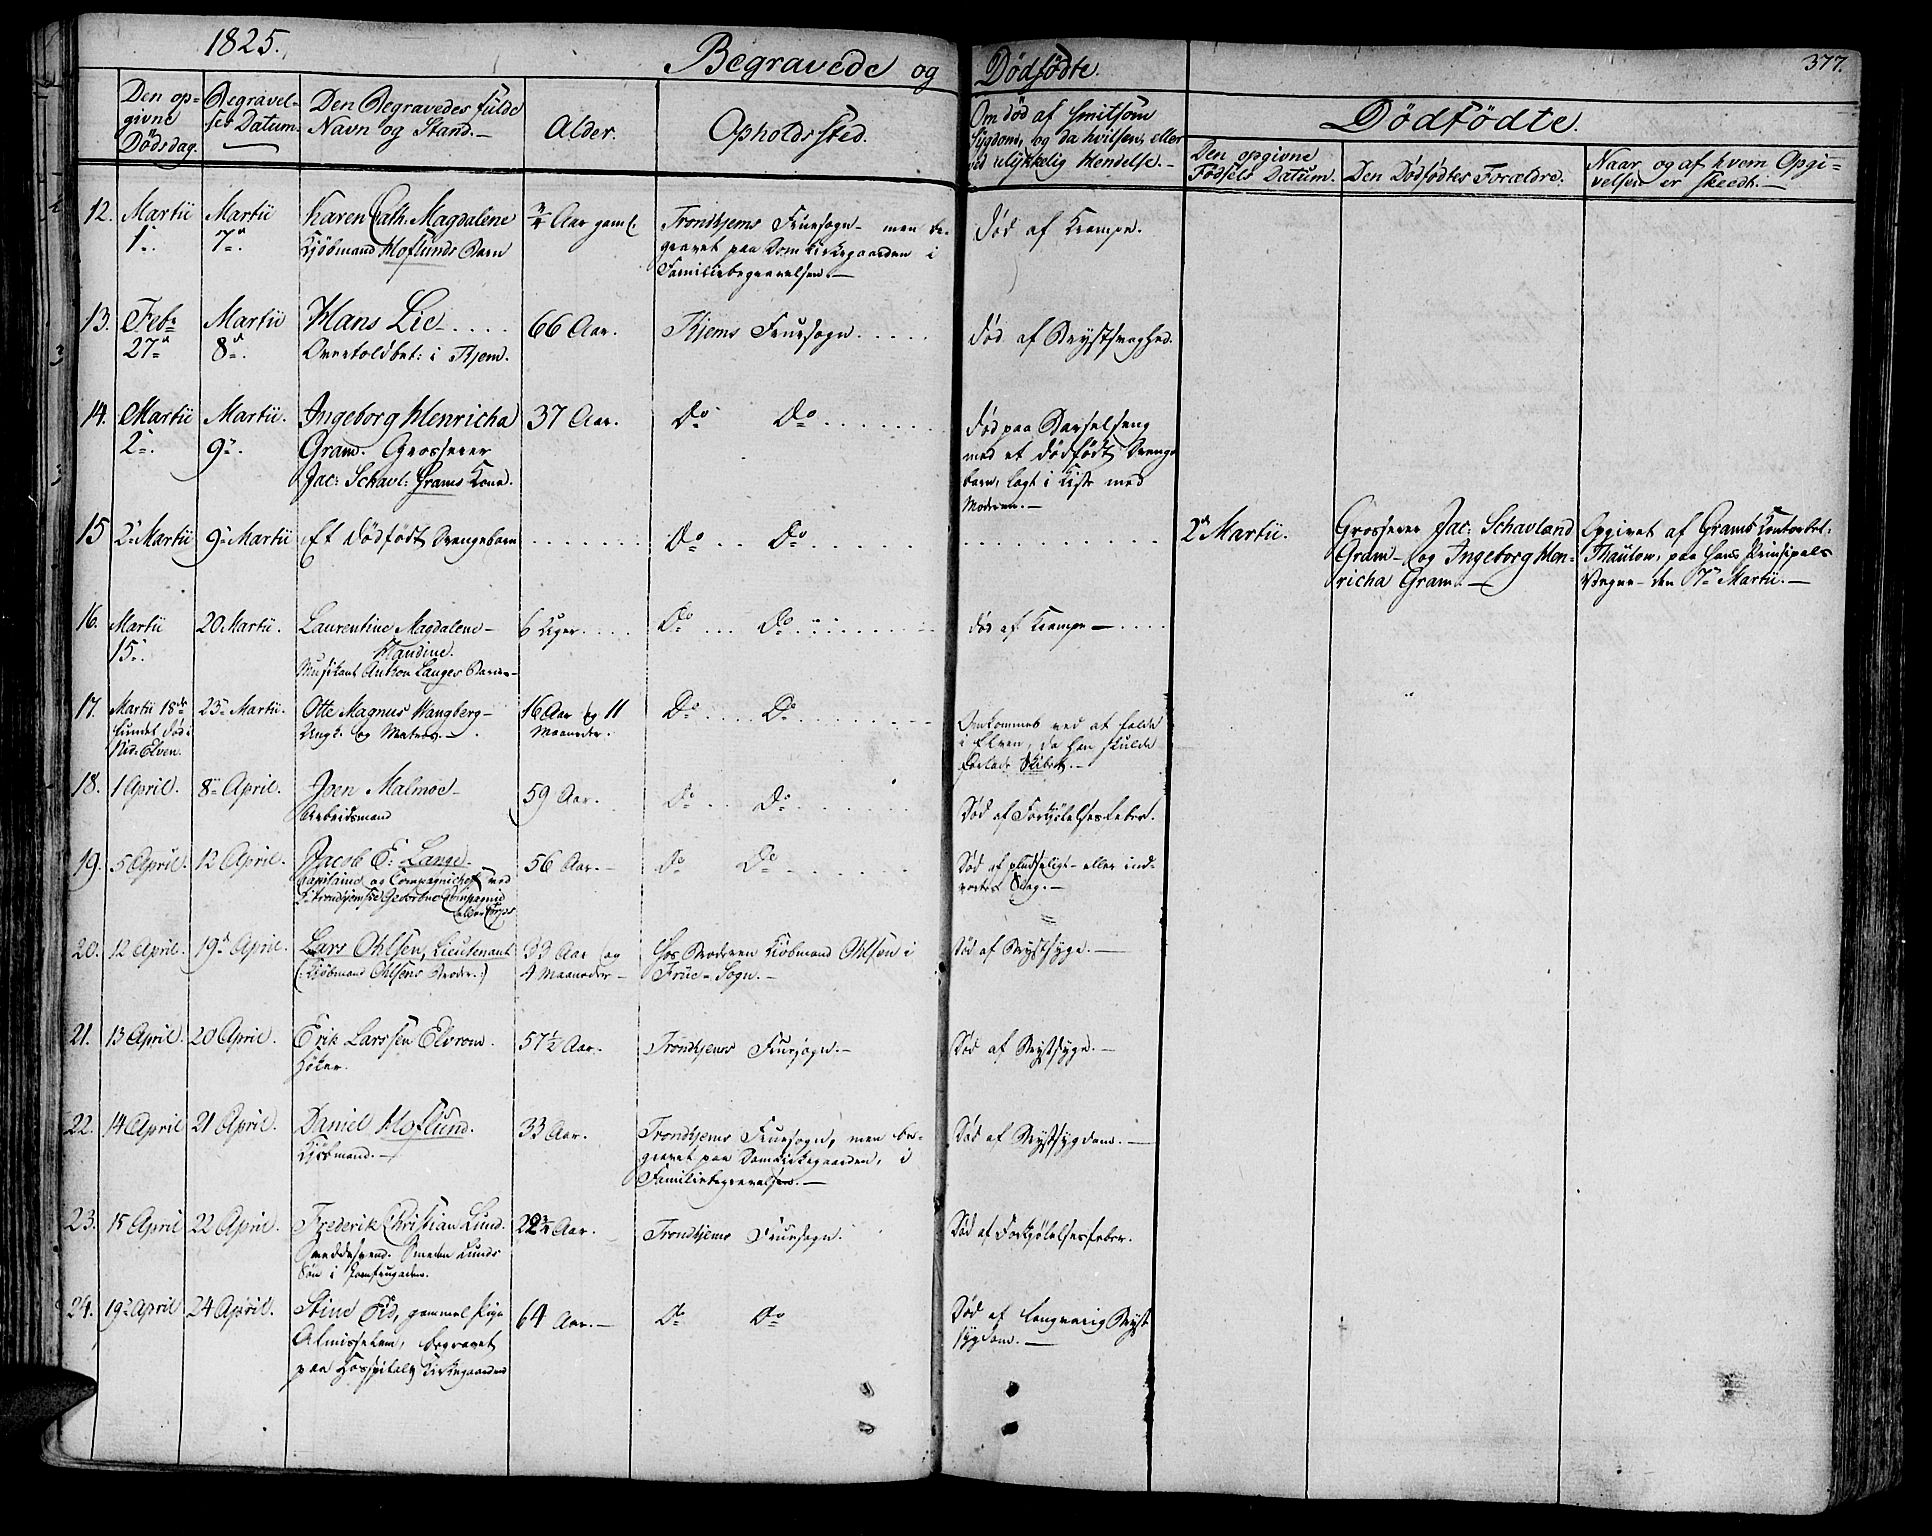 1825.
Begravede og Dødfødte.
377.
Den op-
givne
Dødsdag.
Begravel-
ses Datum.
Den Begravedes fulde
Navn og Stand.
Alder.
Opholdssted.
Om død af smitsom
Sygdom, og da hvilken, eller
ved ulykkelig Hendelse.
Dødfødte.
Den opgivne
Fødsels Datum.
Den Dødfødtes Forældre.
Naar og af hvem Opgi-
velsen er skeedt.
12. Martii 1. Martii 7. Karen Cath. Magdalene
Kjöbmand Hoflunds Barn
Aar gaml.
Trondhjems Fruesogn - men be-
gravet paa Domkirkegaarden i
Familiebegravelsen.
død af Krampe.
13. Feb. 27. Martii 8. Hans Lie
Overtoldbet: i Thjem.
66 Aar.
Thjems Fruesogn.
død af Brystsvaghed.
14. Martii 2. Martii. 9. Ingeborg Henricha
Gram. Grosserer
Jac: Schavl: Grams Kone.
37 Aar.
Do Do
død paa Barselseng
med et dødfødt Drenge
barn, lagt i Kiste med
Moderen.
15 2 Martii 9 Martii Et dødfødt Drengebarn
Do Do
2 Martii.
Grosserer Jac: Schavland
Gram - og Ingeborg Hen-
richa Gram.
Opgivet af Grams Contorbet:
Thaulow, paa hans Prinsipals
Vegne - den 7 Martii.
16. Martii 15. 20 Martii. Laurentine Magdalene
Klaudine.
Musikant Anton Langes Barn
6 Uger
Do Do
død af Krampe
17. Martii 18de
fundet død i
Nid-Elven.
23 Martii. Otte Magnus Wangberg
Ungk: og Matros.
16 Aar og 11
Maaneder.
Do Do
Omkommet ved at falde
i Elven, da han skulde
forlade Skibet.
18. 1 April. 8 April. Joen Malmoe
Arbeidsmand
59 Aar.
Do Do
Død af Forkjølelsesfeber.
19. 5 April. 12 April. Jacob E: Lange.
Capitaine og Compagnichef ved
56 Aar.
Do Do
Død af pludseligt - eller ind-
vortes Slag.
20. 12 April. 19 April. Lars Ohlsen, Lieutenant
(:Kjöbmand Ohlsens Broder.:)
39 Aar og
4 Maaneder
Hos Broderen Kiöbmand Ohlsen i
Frue-Sogn.
Død af Brystsyge.
21. 13 April. 20 April. Erik Larssen Elvrom.
Høker.
57½ Aar.
Trondhjems Fruesogn.
Død af Brystsyge.
22. 14 April 21 April. Daniel Hoflund.
Kjöbmand.
33 Aar.
Trondhjems Fruesogn, men be-
gravet paa Domkirkegaarden, i
Familiebegravelsen.
Død af Brystsygdom.
23. 15 April 22 April. Frederik Christian Lund.
Smeddesvend. Smeden Lunds
Søn i
22¾ Aar.
Trondhjems Fruesogn.
Død af Forkjølelsesfeber.
24. 19 April 24 April. Stine Eid, gammel Pige
Almisselem, begravet
paa Hospitals Kirkegaarden
64 Aar.
do do
Død af langvarig Bryst
sygdom.